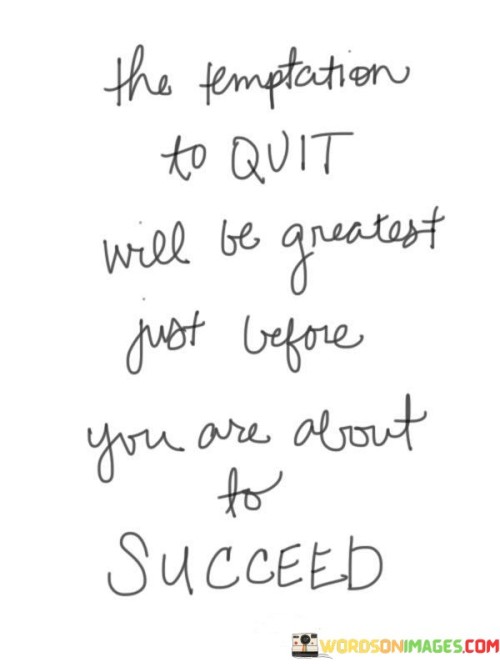 the temptation
to QUIT
will be greatest
just before
you are about
to
SUCCEED
WORDSONIMAGES.COM